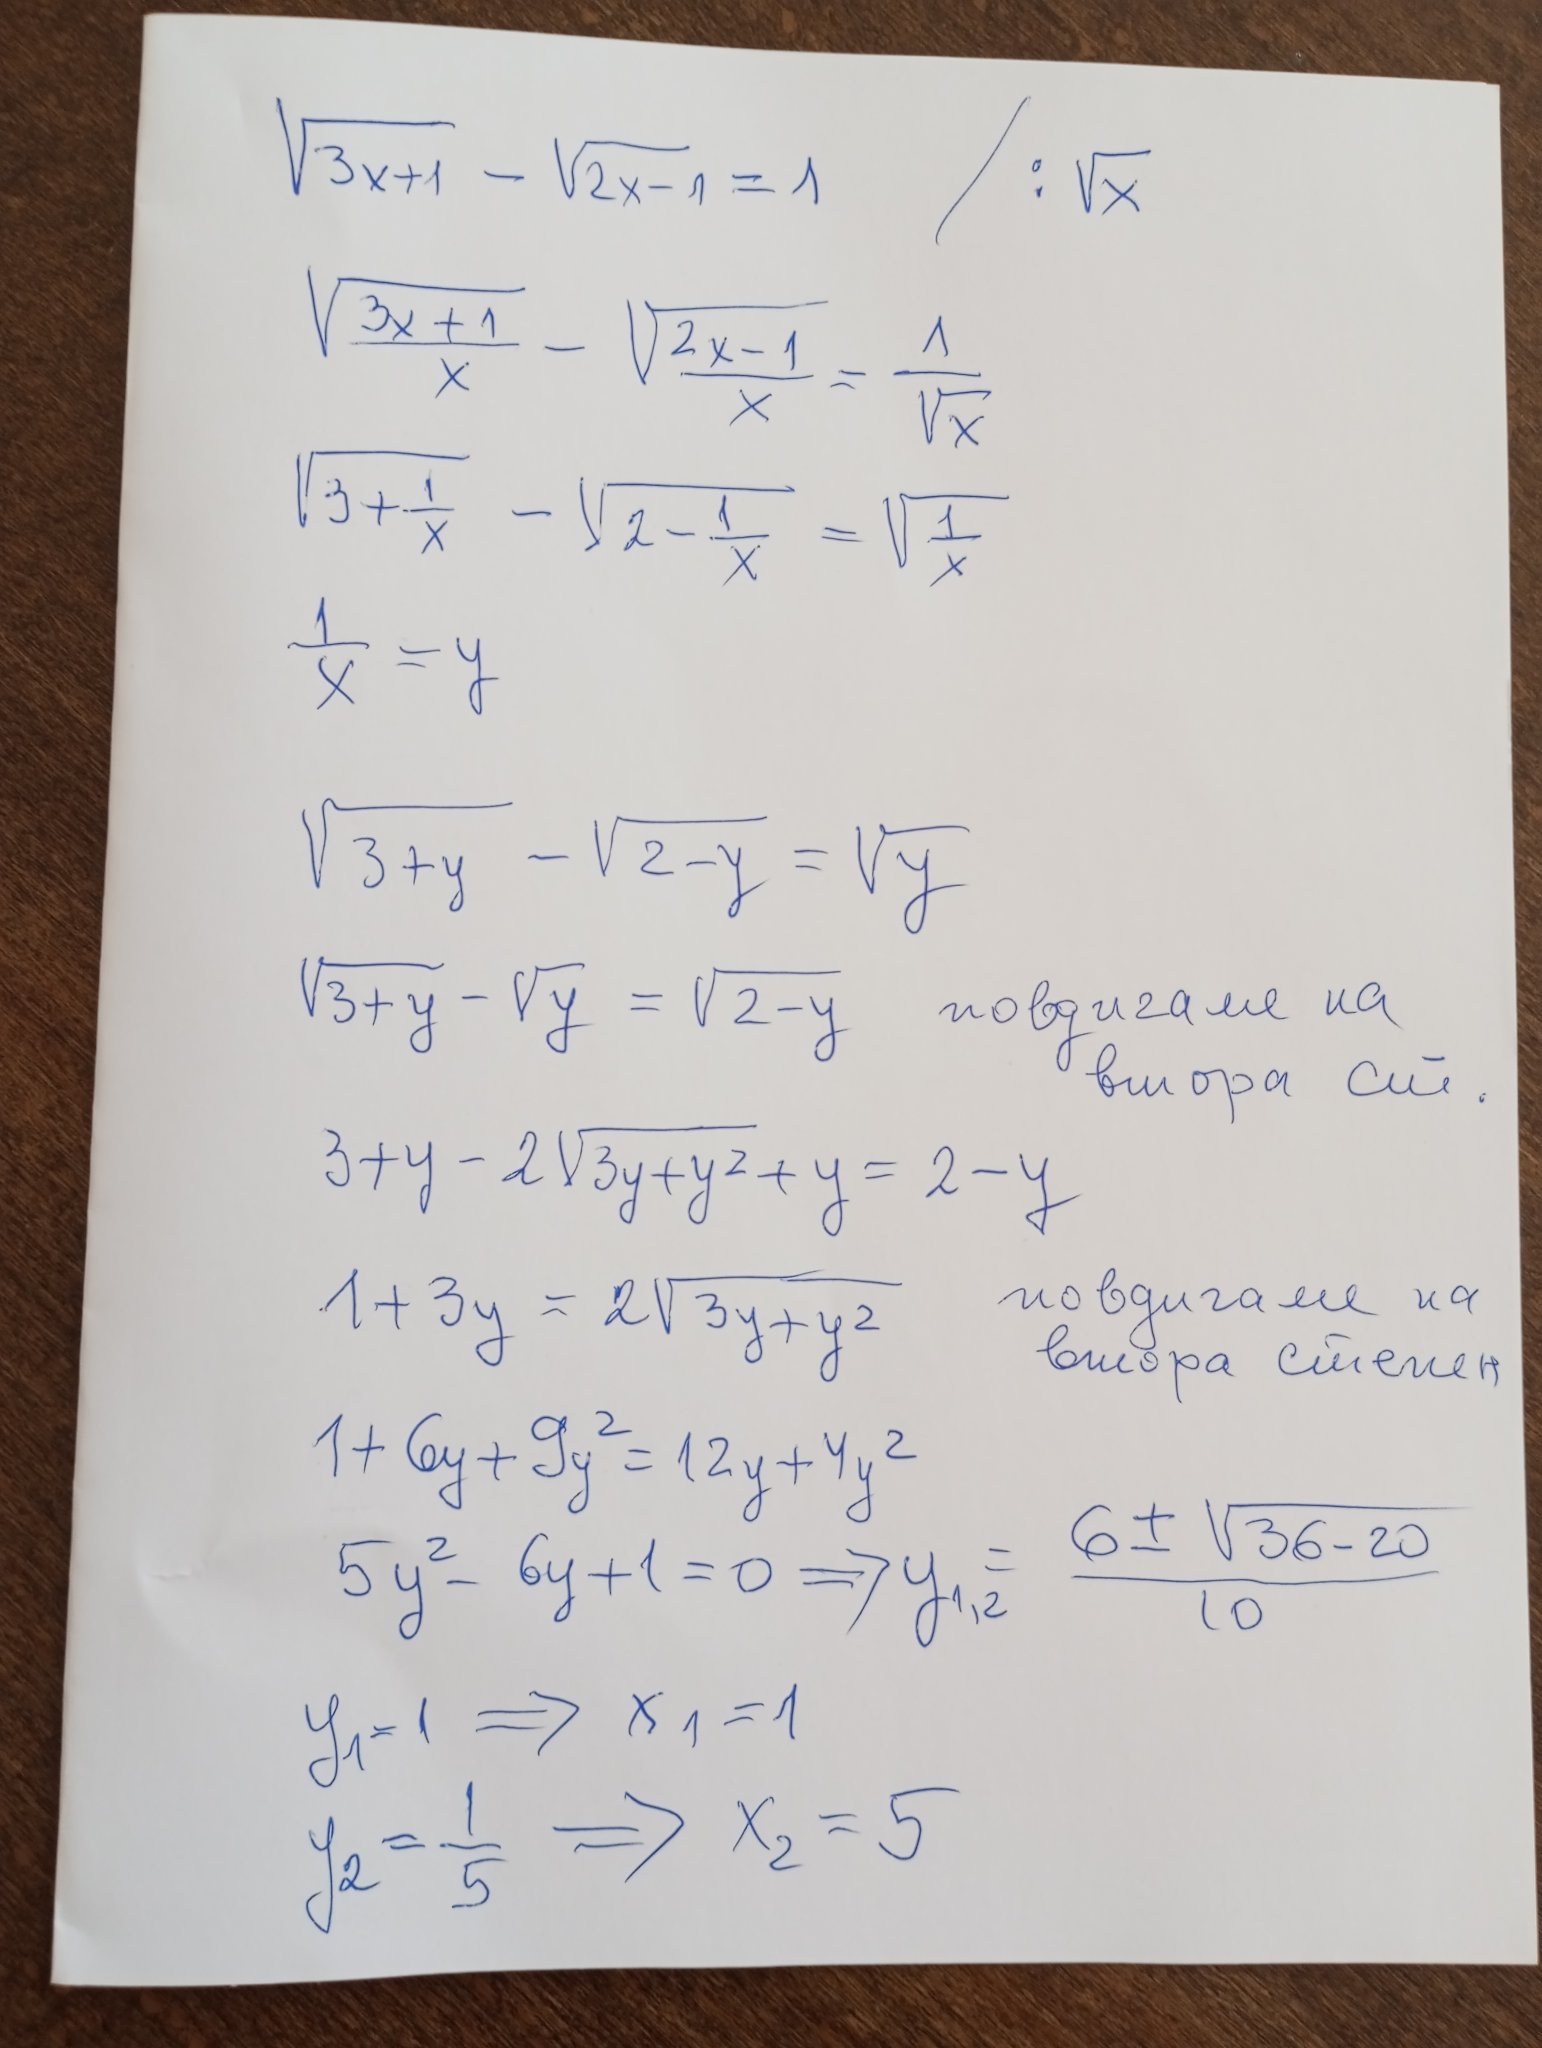 √(3x+1) - √(2x-1) = 1 / : √x
√((3x+1)/x) - √((2x-1)/x) = 1/√x
√(3+1/x) - √(2-1/x) = √(1/x)
1/x = y
√(3+y) - √(2-y) = √y
√(3+y) - √y = √(2-y) повдигаме на
втора ст.
3+y-2√(3y+y²)+y = 2-y
1+3y = 2√(3y+y²) повдигаме на
втора степен
1+6y+9y² = 12y+4y²
5y²-6y+1=0 ⇒ y₁,₂ = (6±√(36-20))/10
y₁=1 ⇒ x₁=1
y₂=1/5 ⇒ x₂=5